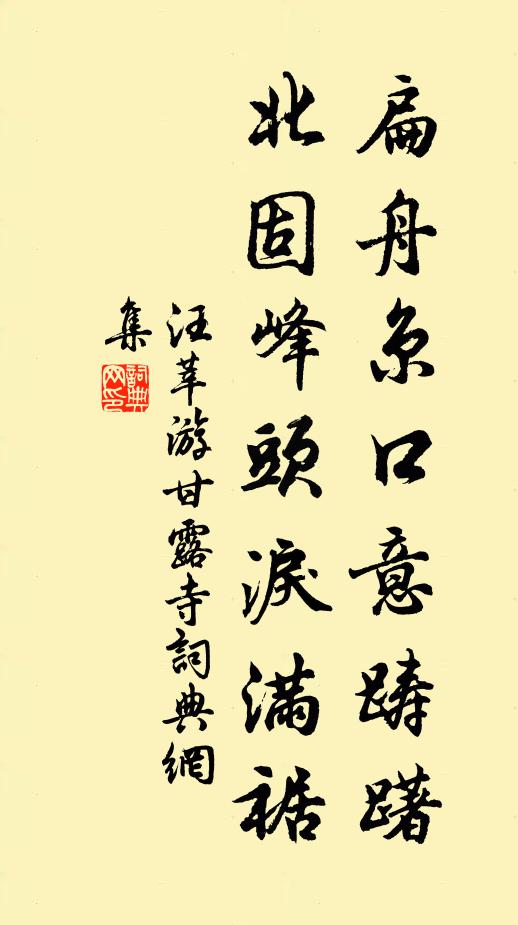 扁舟京口意踌躇
北固峰頭淚满裾
汪莘游甘露寺詞典網
集
詞典网印